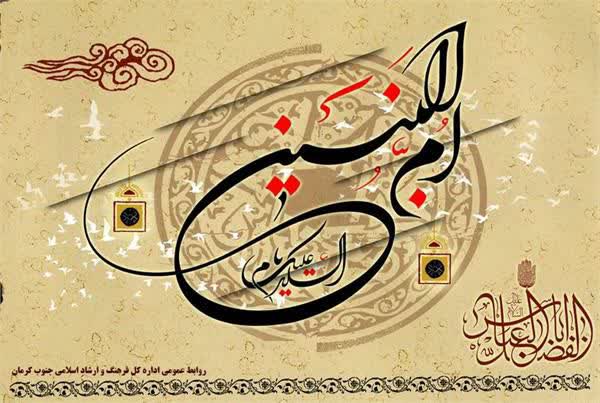 السلام علیک یا ام البنین
یا اباالفضل العباس
روابط عمومی اداره کل فرهنگ و ارشاد اسلامی جنوب کرمان